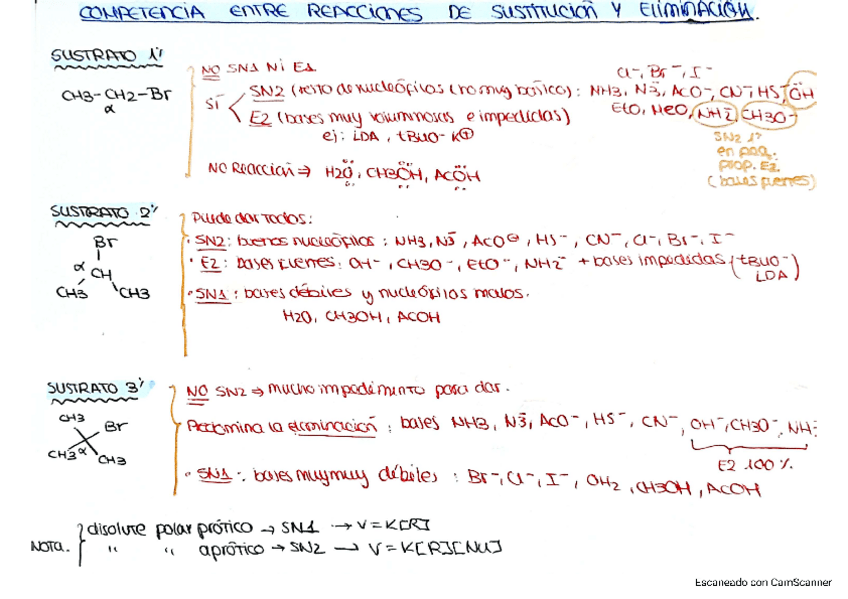 COMPETENCIA ENTRE REACCIONES DE SUSTITUCIÓN Y ELIMINACIÓN.
SUSTRATO 1º
CH3-CH2-Br
α
NO SN1 Ni E1
Cl-, Br-, I-
SÍ
SN2 (resto de nucleófilos (no muy básico): NH3, N3-, ACO-, CN-, HS-, OH
E2 (bases muy voluminosas e impedidas)
EtO, MeO, NH2-, CH3O-
ej: LDA, tBuO- K+
SN2 1º
en peq.
prop. E2.
(bases fuertes)
NO Reacción ⇒ H2O, CH3OH, ACOH
SUSTRATO 2º
Br
α CH
CH3 CH3
Puede dar todos:
· SN2: buenos nucleófilos: NH3, N3-, ACO⊖, HS-, CN-, Cl-, Br-, I-
· E2: bases fuertes: OH-, CH3O-, EtO-, NH2- + bases impedidas (tBUO-)
LDA
· SN1: bases débiles y nucleófilos malos.
H2O, CH3OH, ACOH
SUSTRATO 3º
CH3
Br
CH3 α CH3
NO SN2 ⇒ mucho impedimento para dar.
Predomina la eliminación: bases NH3, N3-, ACO-, HS-, CN-, OH-, CH3O-, NH2-
E2 100%
· SN1: bases muy muy débiles: Br-, Cl-, I-, OH2, CH3OH, ACOH
NOTA.
disolvte polar prótico → SN1 → V=K[R]
" " aprótico → SN2 → V=K[R][NU]
Escaneado con CamScanner